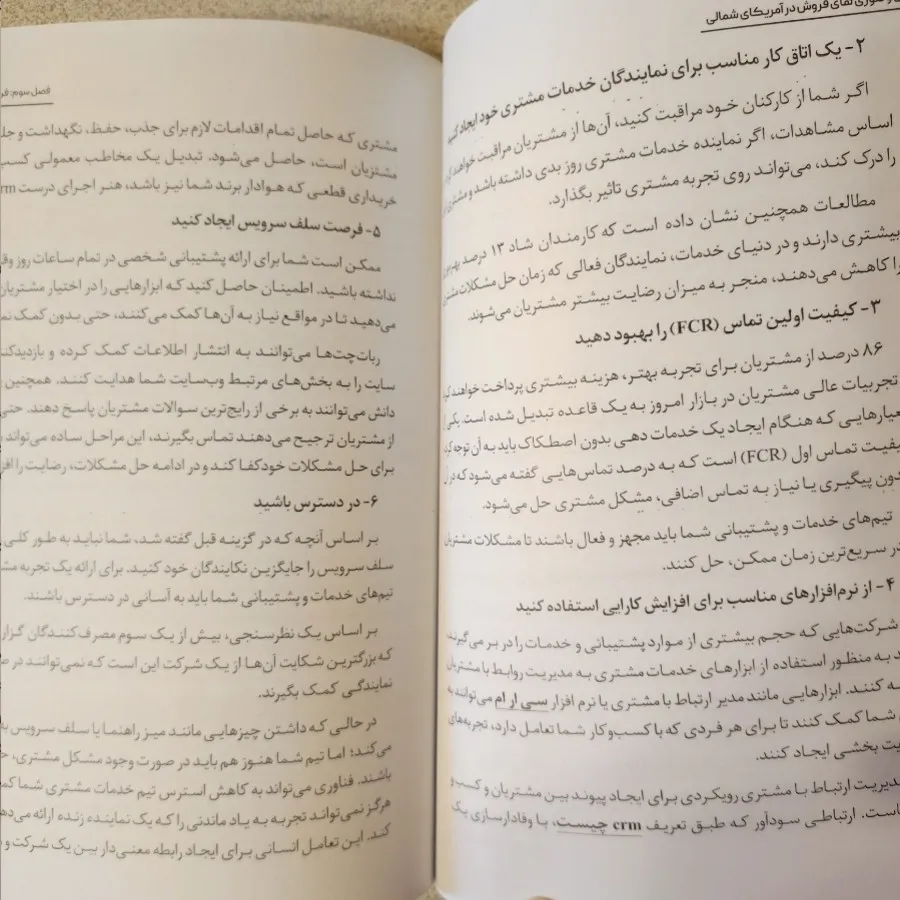 فروش در آمریکای شمالی
۲- یک اتاق کار مناسب برای نمایندگان خدمات مشتری خود ایجاد کنید
اگر شما از کارکنان خود مراقبت کنید، آن‌ها از مشتریان مراقبت خواهند
اساس مشاهدات، اگر نماینده خدمات مشتری روز بدی داشته باشد و مشتری
را درک کند، می‌تواند روی تجربه مشتری تاثیر بگذارد.
مطالعات همچنین نشان داده است که کارمندان شاد ۱۳ درصد
بیشتری دارند و در دنیای خدمات، نمایندگان فعالی که زمان حل مشکلات
را کاهش می‌دهند، منجر به میزان رضایت بیشتر مشتریان می‌شوند.
۳- کیفیت اولین تماس (FCR) را بهبود دهید
۸۶ درصد از مشتریان برای تجربه بهتر، هزینه بیشتری پرداخت خواهند
تجربیات عالی مشتریان در بازار امروز به یک قاعده تبدیل شده است. یکی
معیارهایی که هنگام ایجاد یک خدمات دهی بدون اصطکاک باید به آن توجه
کیفیت تماس اول (FCR) است که به درصد تماس‌هایی گفته می‌شود که در
بدون پیگیری یا نیاز به تماس اضافی، مشکل مشتری حل می‌شود.
تیم‌های خدمات و پشتیبانی شما باید مجهز و فعال باشند تا مشکلات مشتریان
در سریع‌ترین زمان ممکن، حل کنند.
۴- از نرم‌افزارهای مناسب برای افزایش کارایی استفاده کنید
شرکت‌هایی که حجم بیشتری از موارد پشتیبانی و خدمات را در بر می‌گیرند
به منظور استفاده از ابزارهای خدمات مشتری به مدیریت روابط با مشتریان
کنند. ابزارهایی مانند مدیر ارتباط با مشتری یا نرم افزار سی ار ام می‌توانند به
شما کمک کنند تا برای هر فردی که با کسب‌وکار شما تعامل دارد، تجربه‌های
بخشی ایجاد کنند.
مدیریت ارتباط با مشتری رویکردی برای ایجاد پیوند بین مشتریان و کسب و
است. ارتباطی سودآور که طبق تعریف crm چیست، با وفادارسازی یک
فصل سوم:
مشتری که حاصل تمام اقدامات لازم برای جذب، حفظ، نگهداشت و
مشتریان است، حاصل می‌شود. تبدیل یک مخاطب معمولی کسب
خریداری قطعی که هوادار برند شما نیز باشد، هنر اجرای درست
۵- فرصت سلف سرویس ایجاد کنید
ممکن است شما برای ارائه پشتیبانی شخصی در تمام ساعات روز
نداشته باشید. اطمینان حاصل کنید که ابزارهایی را در اختیار مشتریان
می‌دهید تا در مواقع نیاز به آن‌ها کمک می‌کنند، حتی بدون کمک
ربات‌چت‌ها می‌توانند به انتشار اطلاعات کمک کرده و
سایت را به بخش‌های مرتبط وب‌سایت شما هدایت کنند. همچنین
دانش می‌توانند به برخی از رایج‌ترین سوالات مشتریان پاسخ دهند. حتی
از مشتریان ترجیح می‌دهند تماس بگیرند، این مراحل ساده می‌تواند
برای حل مشکلات خودکفا کند و در ادامه حل مشکلات، رضایت را
۶- در دسترس باشید
بر اساس آنچه که در گزینه قبل گفته شد، شما نباید به طور کلی
سلف سرویس را جایگزین نکایندگان خود کنید. برای ارائه یک تجربه
تیم‌های خدمات و پشتیبانی شما باید به آسانی در دسترس باشند.
بر اساس یک نظرسنجی، بیش از یک سوم مصرف‌کنندگان
که بزرگترین شکایت آن‌ها از یک شرکت این است که نمی‌توانند در
نمایندگی کمک بگیرند.
در حالی که داشتن چیزهایی مانند میز راهنما یا سلف سرویس
می‌کند؛ اما تیم شما هنوز هم باید در صورت وجود مشکل مشتری،
باشند. فناوری می‌تواند به کاهش استرس تیم خدمات مشتری شما
هرگز نمی‌تواند تجربه به یاد ماندنی را که یک نماینده زنده ارائه
کند. این تعامل انسانی برای ایجاد رابطه معنی‌دار بین یک شرکت و